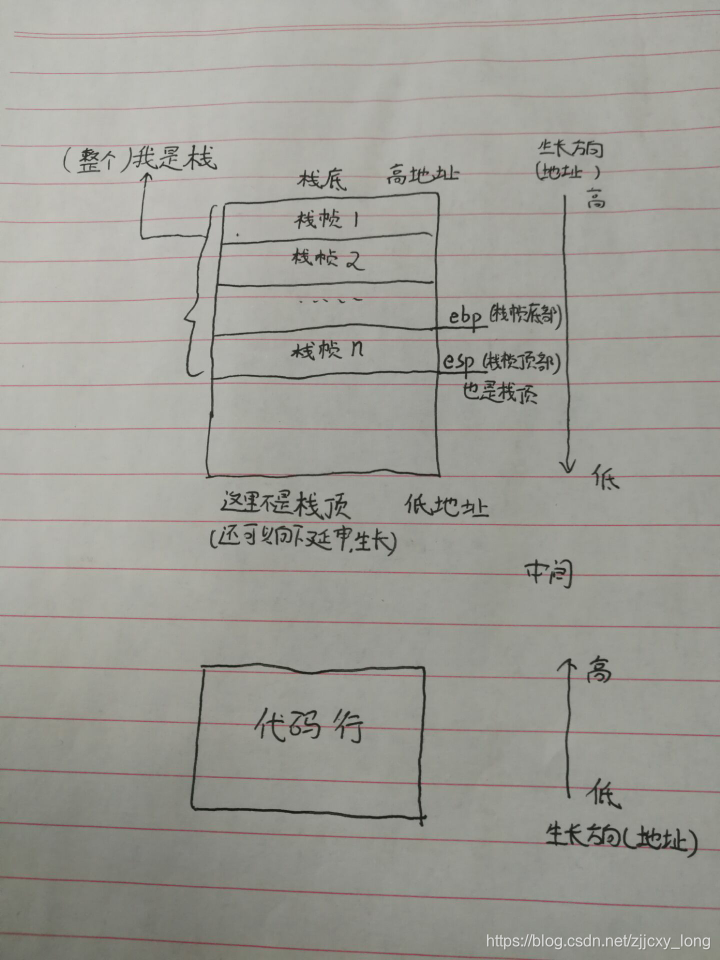 (整个)我是栈
栈底 高地址
生长方向
(地址)
高
栈帧1
栈帧2
.....
ebp(栈帧底部)
栈帧n
esp(栈帧顶部)
也是栈顶
低
这里不是栈顶 低地址
(还可以向下延申,生长)
中间
高
代码行
低
生长方向(地址)
https://blog.csdn.net/zjjcxy_long